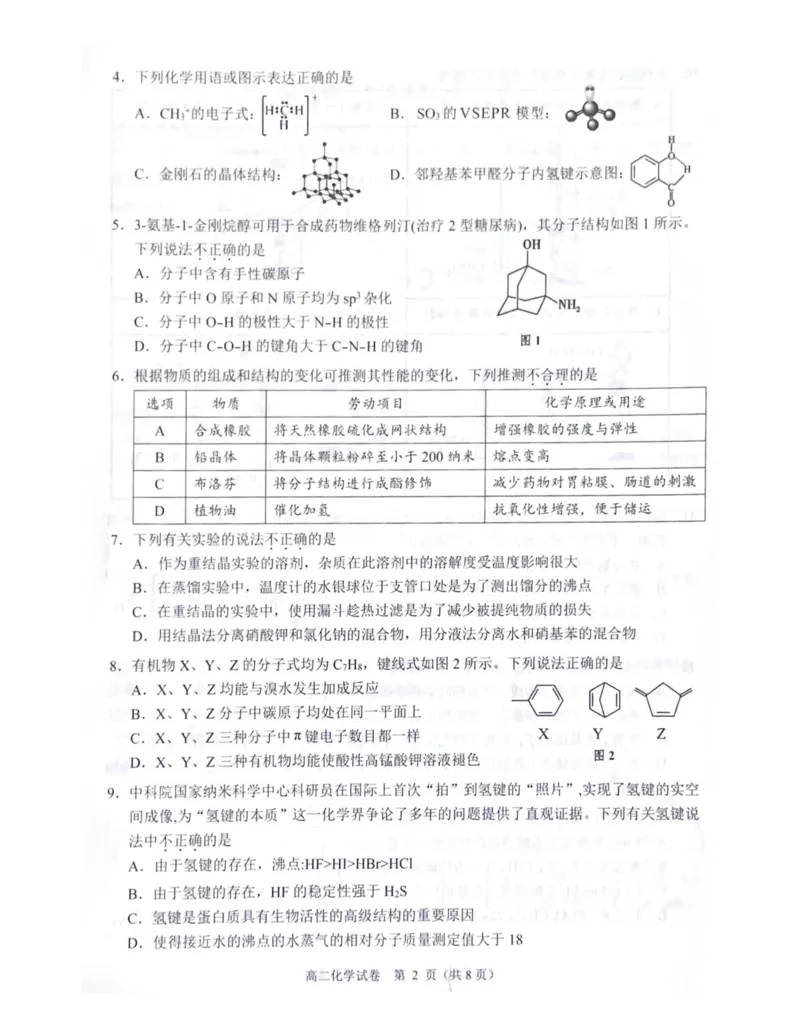 4．下列化学用语或图示表达正确的是
A．CH₃⁺的电子式：[H:C:H H]⁺ B．SO₃的VSEPR 模型：
C．金刚石的晶体结构： D．邻羟基苯甲醛分子内氢键示意图：
H
O
H
C
O
5．3-氨基-1-金刚烷醇可用于合成药物维格列汀(治疗 2 型糖尿病)，其分子结构如图 1 所示。
下列说法不正确的是
A．分子中含有手性碳原子
B．分子中 O 原子和 N 原子均为 sp³ 杂化
C．分子中 O-H 的极性大于 N-H 的极性
D．分子中 C-O-H 的键角大于 C-N-H 的键角
OH
NH₂
图 1
6．根据物质的组成和结构的变化可推测其性能的变化，下列推测不合理的是
选项 物质 劳动项目 化学原理或用途
A 合成橡胶 将天然橡胶硫化成网状结构 增强橡胶的强度与弹性
B 铅晶体 将晶体颗粒粉碎至小于 200 纳米 熔点变高
C 布洛芬 将分子结构进行成酯修饰 减少药物对胃粘膜、肠道的刺激
D 植物油 催化加氢 抗氧化性增强，便于储运
7．下列有关实验的说法不正确的是
A．作为重结晶实验的溶剂，杂质在此溶剂中的溶解度受温度影响很大
B．在蒸馏实验中，温度计的水银球位于支管口处是为了测出馏分的沸点
C．在重结晶的实验中，使用漏斗趁热过滤是为了减少被提纯物质的损失
D．用结晶法分离硝酸钾和氯化钠的混合物，用分液法分离水和硝基苯的混合物
8．有机物 X、Y、Z 的分子式均为 C₇H₈，键线式如图 2 所示。下列说法正确的是
A．X、Y、Z 均能与溴水发生加成反应
B．X、Y、Z 分子中碳原子均处在同一平面上
C．X、Y、Z 三种分子中 π 键电子数目都一样
D．X、Y、Z 三种有机物均能使酸性高锰酸钾溶液褪色
X Y Z
图 2
9．中科院国家纳米科学中心科研员在国际上首次“拍”到氢键的“照片”,实现了氢键的实空
间成像,为“氢键的本质”这一化学界争论了多年的问题提供了直观证据。下列有关氢键说
法中不正确的是
A．由于氢键的存在，沸点:HF>HI>HBr>HCl
B．由于氢键的存在，HF 的稳定性强于 H₂S
C．氢键是蛋白质具有生物活性的高级结构的重要原因
D．使得接近水的沸点的水蒸气的相对分子质量测定值大于 18
高二化学试卷 第 2 页（共 8 页）